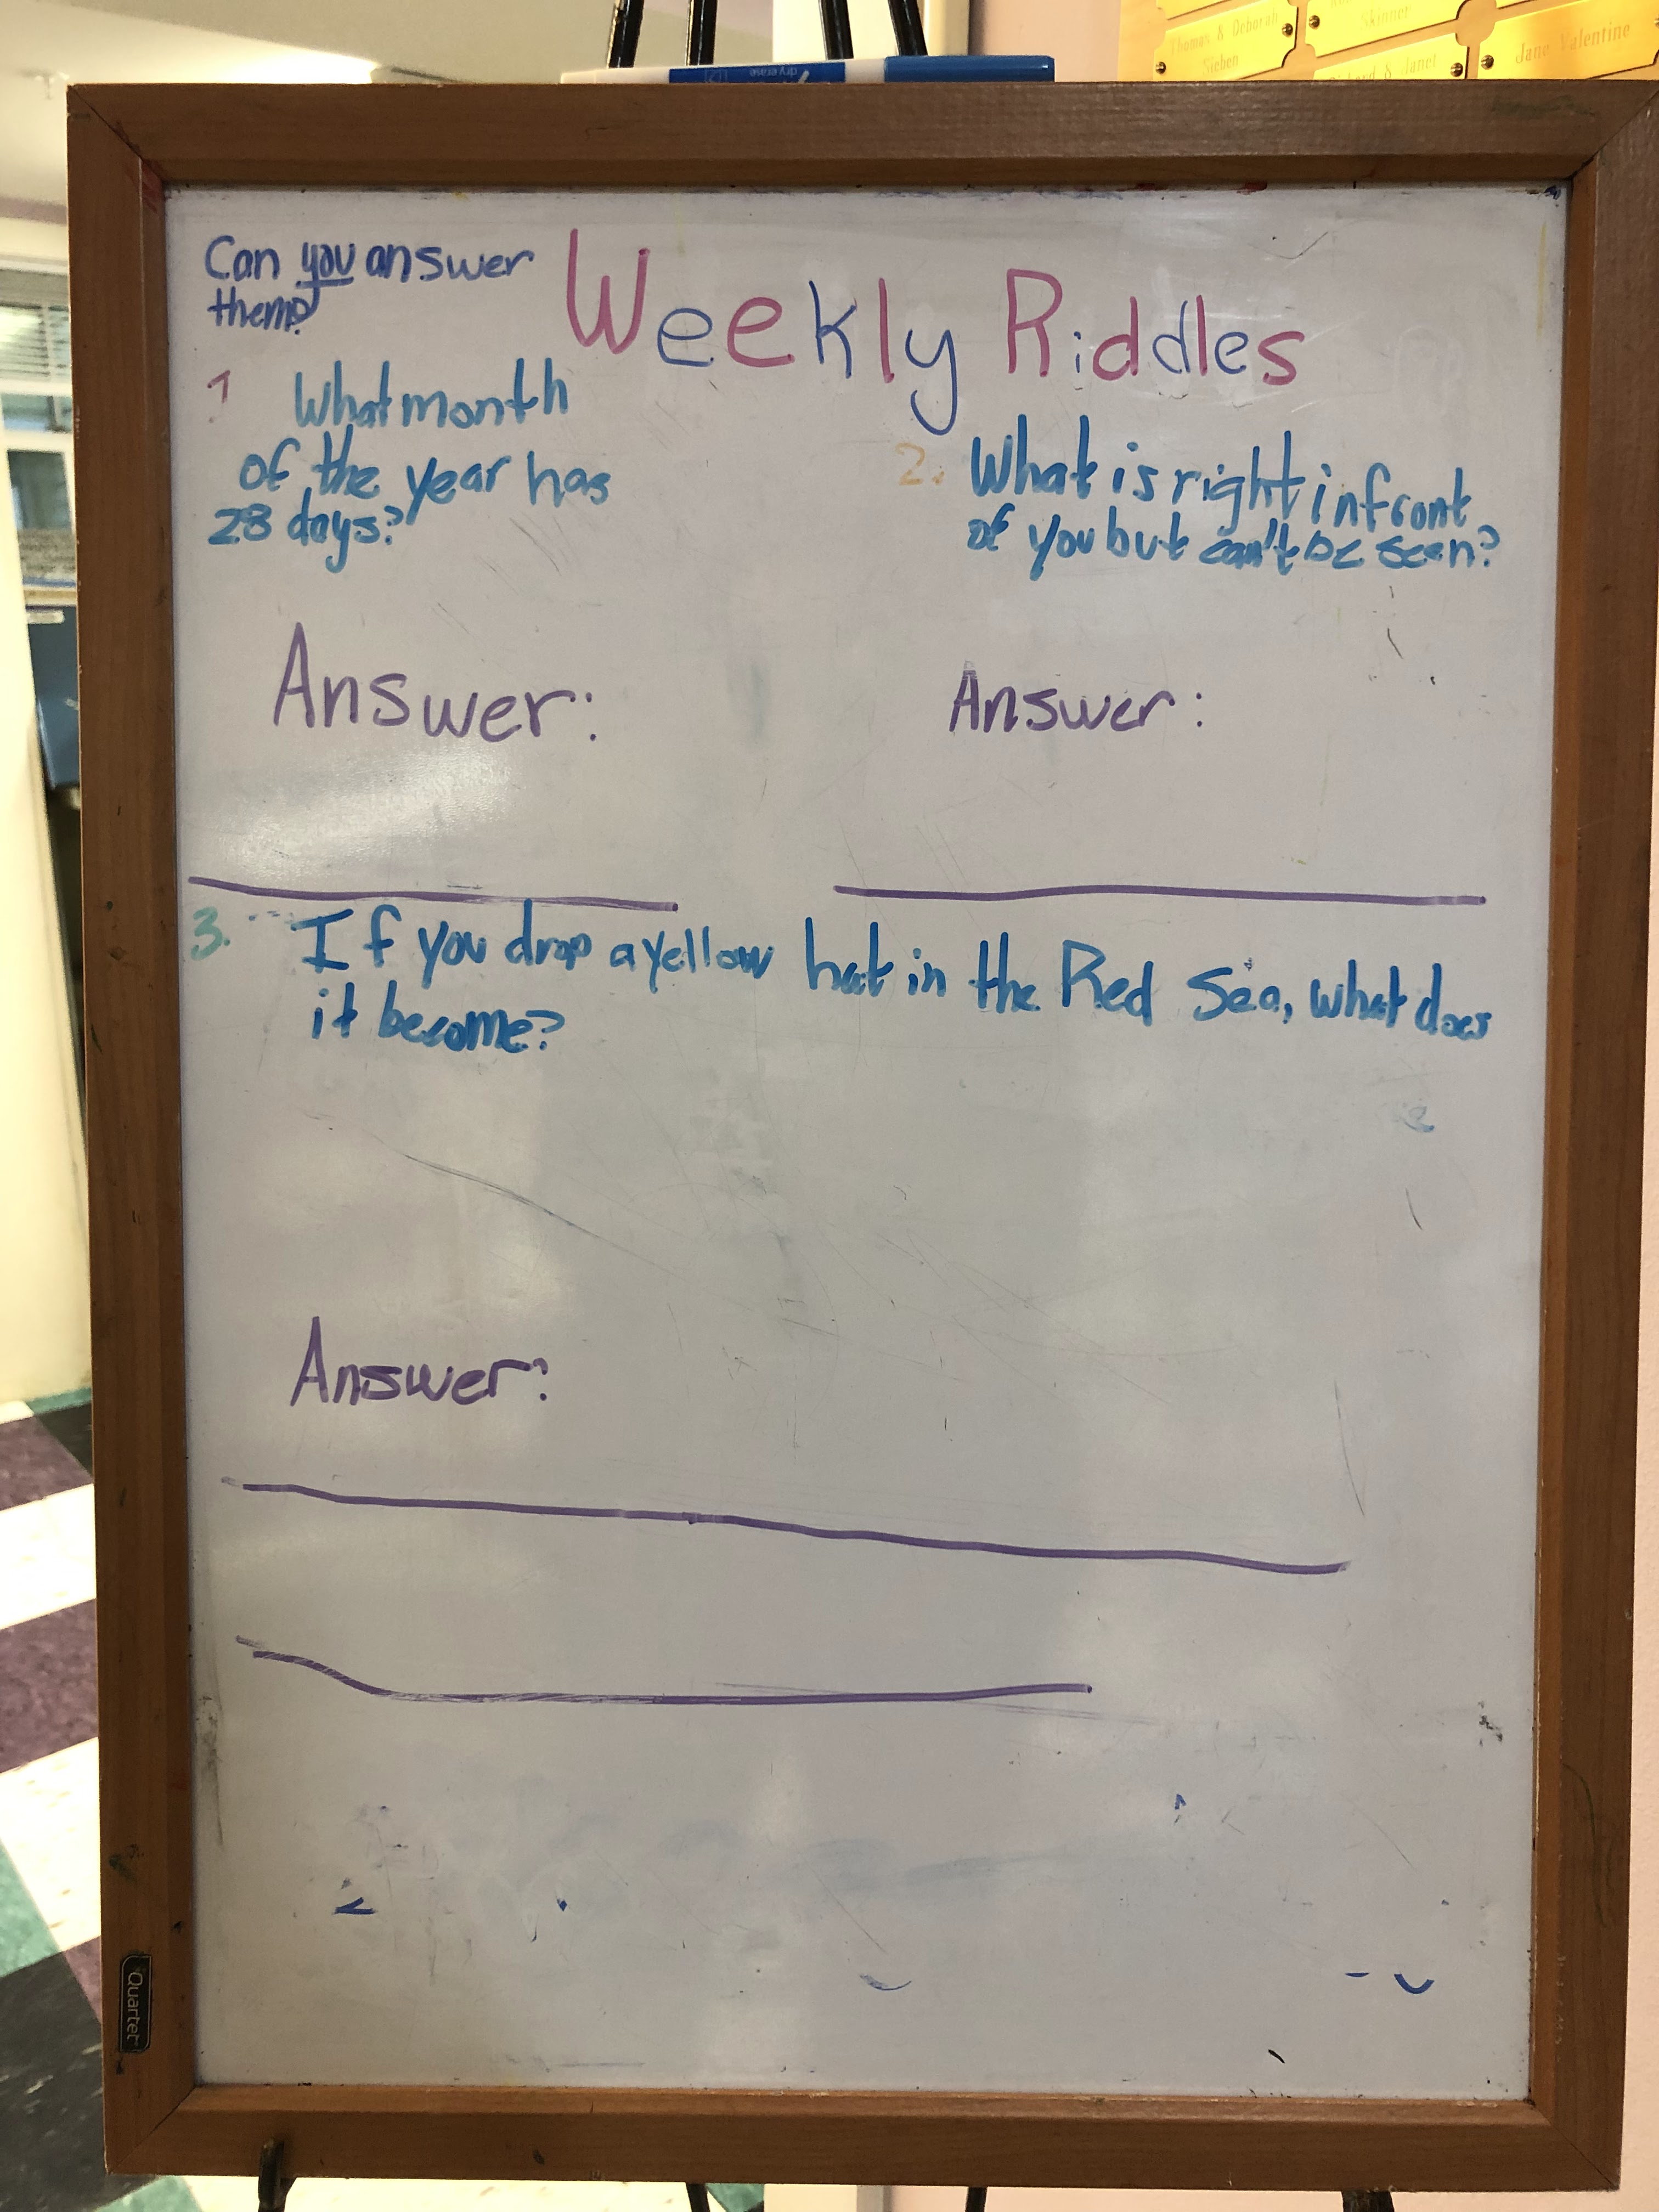 Thomas & Deborah
Sieben
Skinner
Richard & Janet
Jane Valentine
dry erase
Can you answer
them?
Weekly Riddles
1 What month
of the year has
28 days?
2. What is right in front
of you but can't be seen?
Answer:
Answer:
3. If you drop a yellow hat in the Red Sea, what does
it become?
Answer:
Quartet